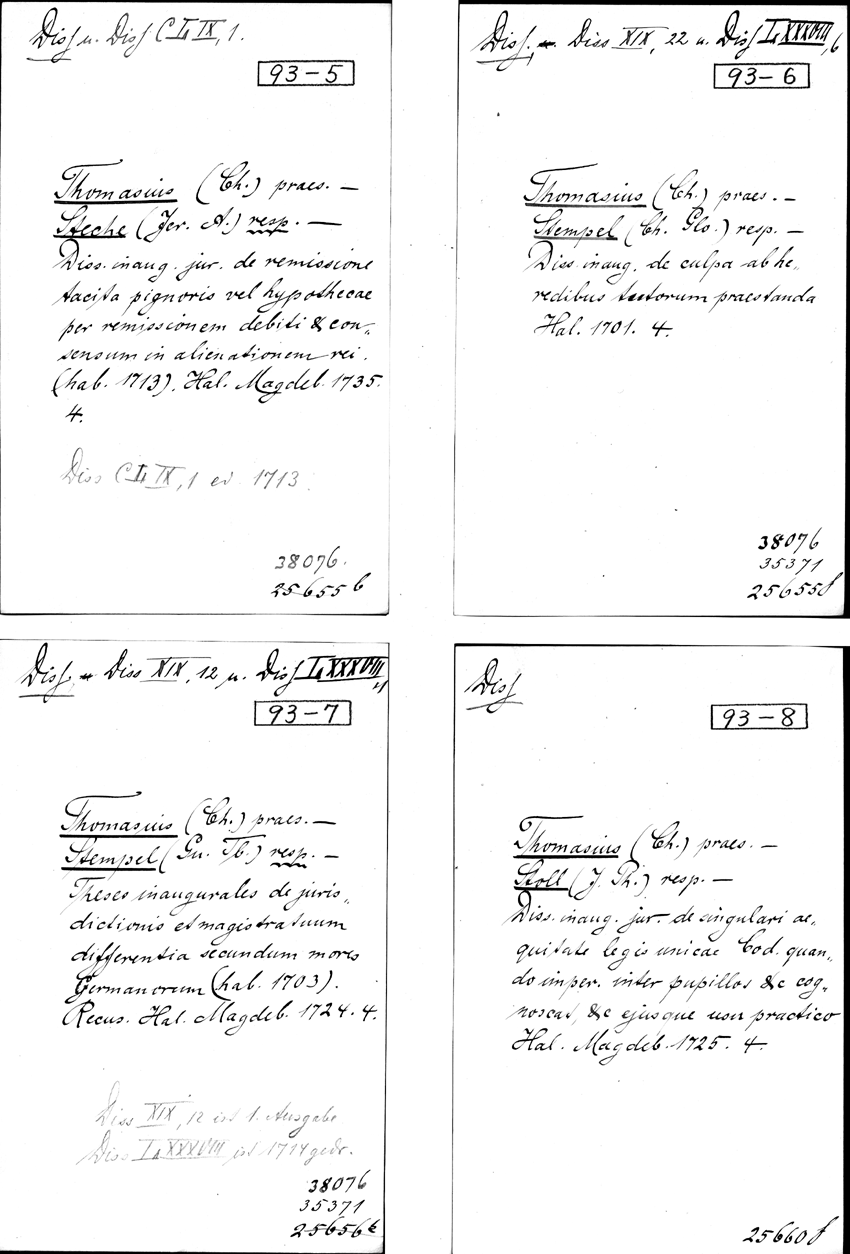 Diss u. Diss CLIX, 1.
93-5
Thomasius (Ch.) praes. —
Steche (Jer. A.) resp. —
Diss. inaug. jur. de remissione
tacita pignoris vel hypothecae
per remissionem debiti & con„
sensum in alienationem rei.
(hab. 1713). Hal. Magdeb. 1735.
4.
Diss CLIX, 1 ed 1713.
38076.
25655 b
Diss. u. Diss XIX, 22 u. Diss LXXXVIII, 6
93-6
Thomasius (Ch.) praes. —
Stempel (Ch. Glo.) resp. —
Diss. inaug. de culpa ab he„
redibus tutorum praestanda
Hal. 1701. 4.
38076
35371
25655 f
Diss. u Diss XIX, 12 u. Diss LXXXVIII
93-7
Thomasius (Ch.) praes. —
Stempel (Gu. Tb.) resp. —
Theses inaugurales de juris„
dictionis et magistratuum
differentia secundum mores
Germanorum (hab. 1703).
Recus. Hal. Magdeb. 1724. 4.
Diss XIX, 12 ist 1. Ausgabe
Diss LXXXVIII ist 1724 gedr.
38076
35371
25656
Diss
93-8
Thomasius (Ch.) praes. —
Stoll (J. Ph.) resp. —
Diss. inaug. jur. de singulari ae„
quitate legis unicae Cod. quan„
do imper. inter pupillos &c cog„
noscat, &c ejusque usu practico
Hal. Magdeb. 1725. 4.
25660 f